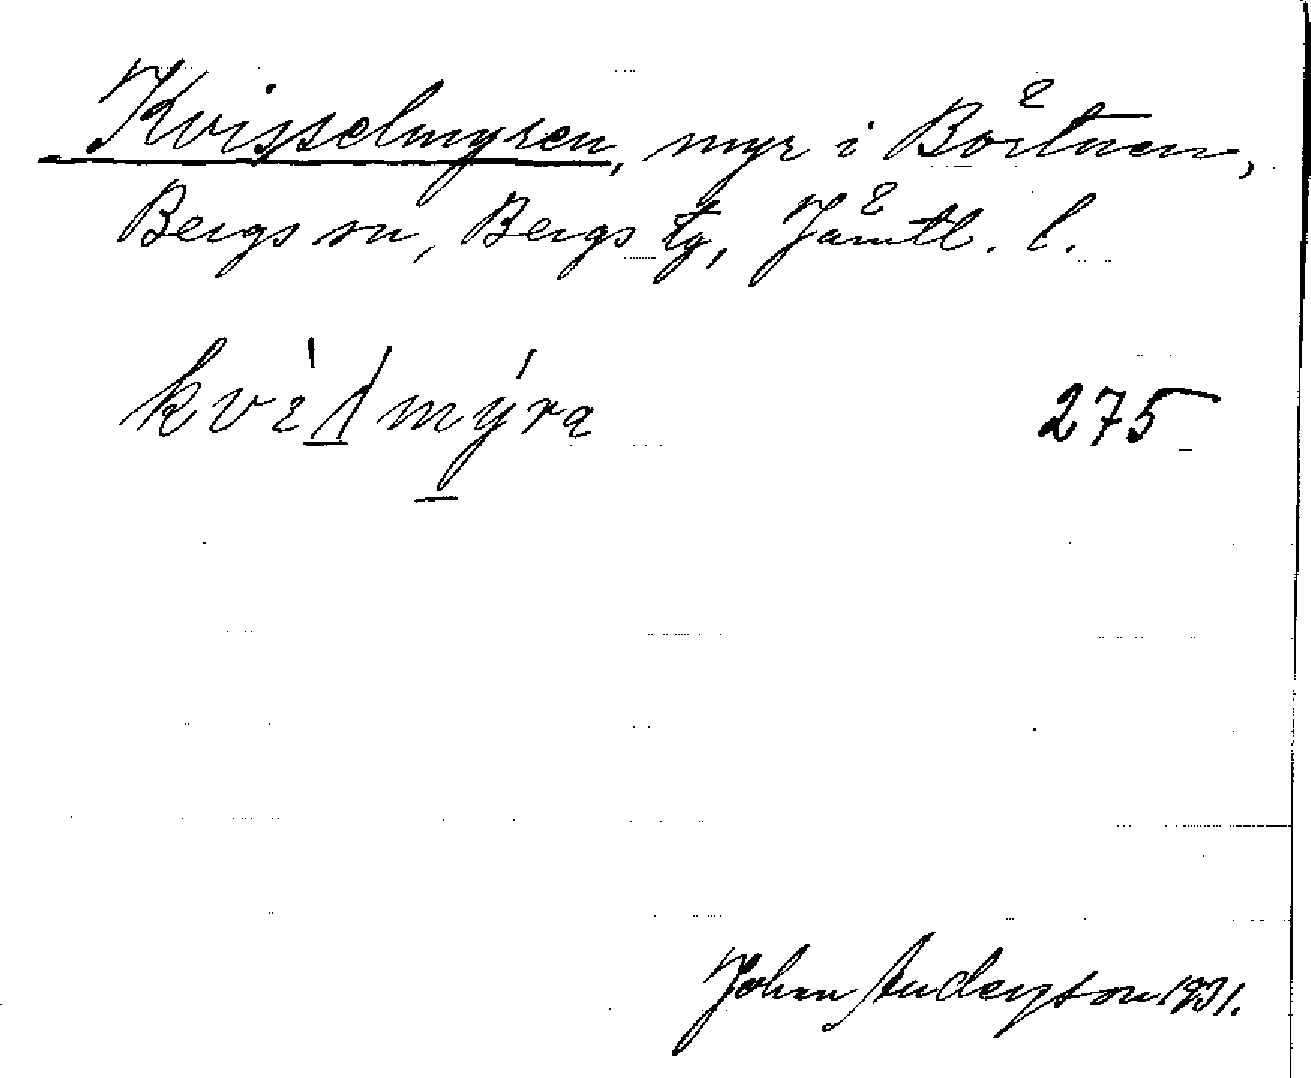 Kvisselmyren, myr i Börtnen,
Bergs sn, Bergs tg, Jämtl. l.
275
Johan Anderson 1931.